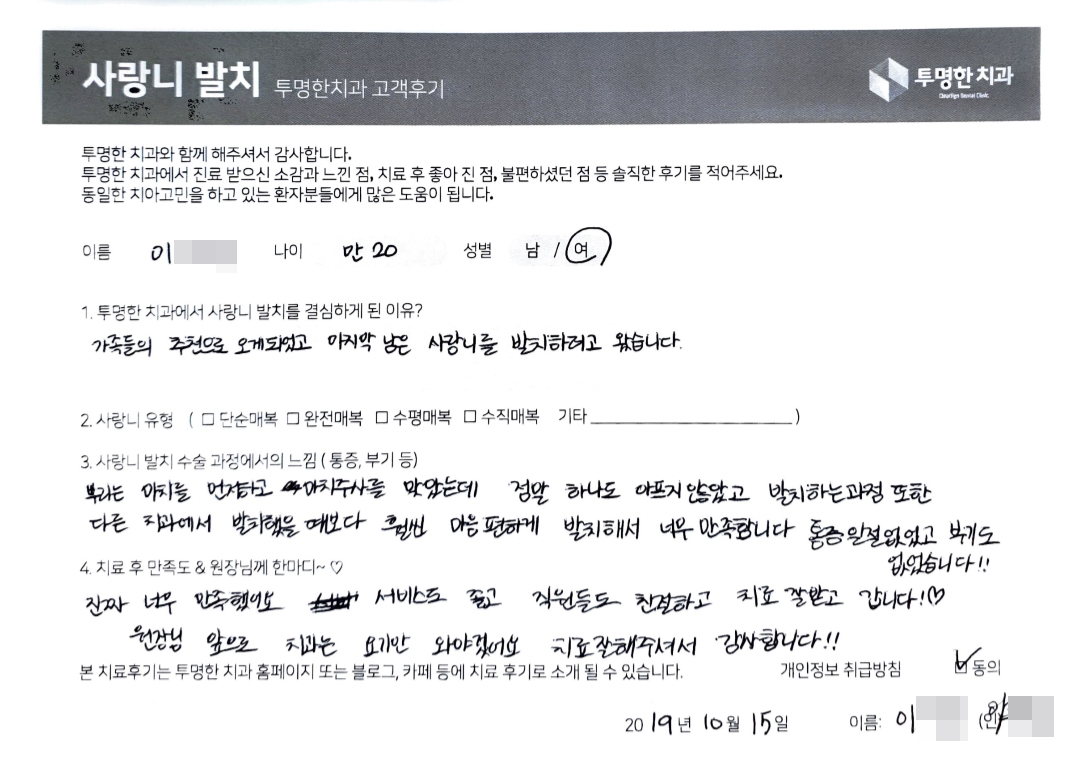 사랑니 발치 투명한치과 고객후기
투명한 치과
투명한 치과와 함께 해주셔서 감사합니다.
투명한 치과에서 진료 받으신 소감과 느낀 점, 치료 후 좋아 진 점, 불편하셨던 점 등 솔직한 후기를 적어주세요.
동일한 치아고민을 하고 있는 환자분들에게 많은 도움이 됩니다.
이름 이 나이 만 20 성별 남 / 여
1. 투명한 치과에서 사랑니 발치를 결심하게 된 이유?
가족들의 추천으로 오게되었고 마지막 남은 사랑니를 발치하려고 왔습니다.
2. 사랑니 유형 ( □ 단순매복 □ 완전매복 □ 수평매복 □ 수직매복 기타 )
3. 사랑니 발치 수술 과정에서의 느낌 ( 통증, 부기 등)
마취를 먼저하고 마취주사를 맞았는데 정말 하나도 아프지 않았고 발치하는과정 또한
다른 치과에서 발치했을 때보다 훨씬 마음 편하게 발치해서 너무 만족합니다 통증 일절 없었고 붓기도
없었습니다!!
4. 치료 후 만족도 & 원장님께 한마디~ ♡
진짜 너무 만족했어요 서비스도 좋고 직원들도 친절하고 치료 잘받고 갑니다!♡
원장님 앞으로 치과는 요기만 와야겠어요 치료잘해주셔서 감사합니다!!
본 치료후기는 투명한 치과 홈페이지 또는 블로그, 카페 등에 치료 후기로 소개 될 수 있습니다. 개인정보 취급방침 ☑ 동의
2019년 10월 15일 이름: 이 (인